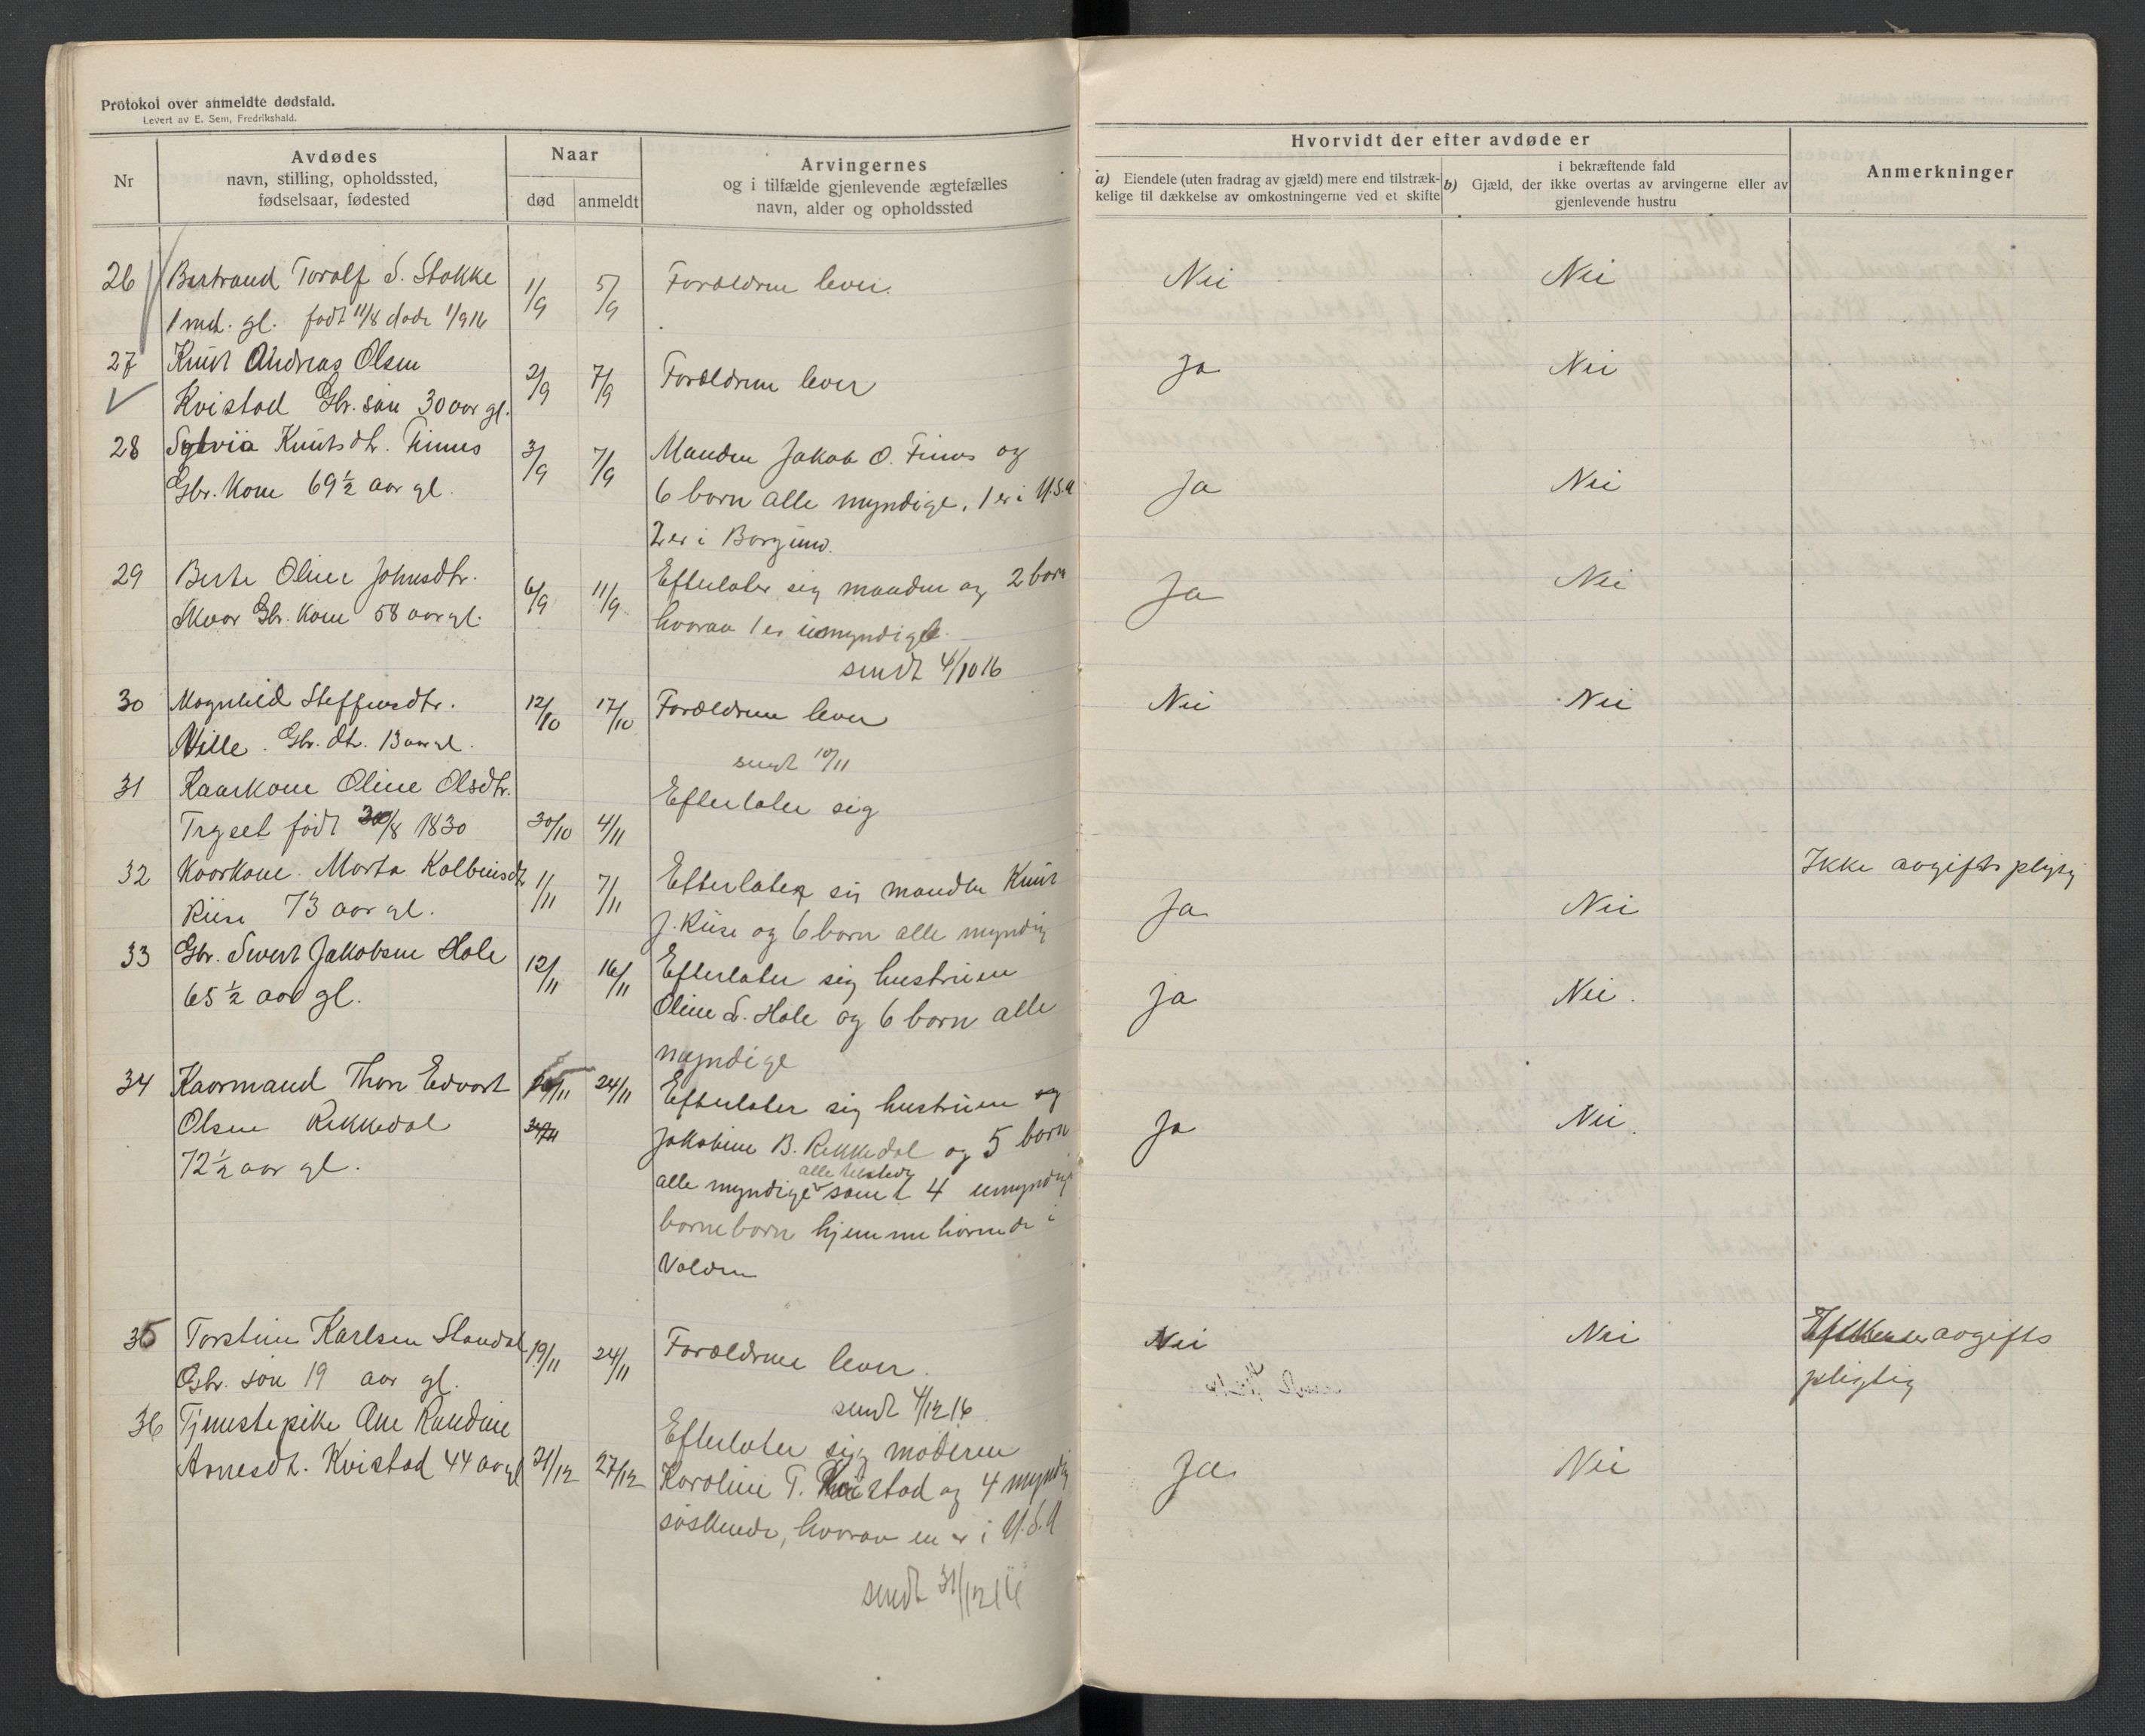 Protokol over anmeldte dødsfald.
Levert av E. Sem, Fredrikshald.
Nr
Avdødes
navn, stilling, opholdssted,
fødselsaar, fødested
Naar
død
anmeldt
Arvingernes
og i tilfælde gjenlevende ægtefælles
navn, alder og opholdssted
Hvorvidt der efter avdøde er
a) Eiendele (uten fradrag av gjæld) mere end tilstræk-
kelige til dækkelse av omkostningerne ved et skifte
i bekræftende fald
b) Gjæld, der ikke overtas av arvingerne eller av
gjenlevende hustru
Anmerkninger
26 Bertrand Toralf S. Stokke 1/9 5/9 Forældrene lever. Nei Nei
1 md. gl. født 11/8 døde 1/9 16
27 Knut Andreas Olsen 2/9 7/9 Forældrene lever Ja Nei
Kvistad Gbr. søn 30 aar gl.
28 Sylvia Knutsdtr. Finnes 3/9 7/9 Manden Jakob O. Finnes og
Gbr. kone 69 ½ aar gl. 6 børn alle myndige, 1 er i U.S.A Ja Nei
2 er i Borgund.
29 Berte Oline Johnsdtr. 6/9 11/9 Efterlater sig manden og 2 børn Ja Nei
Moor Gbr. kone 58 aar gl. hvorav 1 er umyndig
sendt 4/10 16
30 Magnhild Steffensdtr. 12/10 17/10 Forældrene lever Nei Nei
Ville. Gbr. dtr. 13 aar gl.
sendt 10/11
31 Kaarkone Oline Olsdtr. Efterlater sig
Tryset født 30/8 1830 30/10 4/11
32 Kaarkone Marta Kolbeinsdtr 1/11 7/11 Efterlater sig manden Knut Ikke avgiftspligtig
Riise 73 aar gl. J. Riise og 6 børn alle myndig Ja Nei
33 Gbr. Sivert Jakobsen Hole 12/11 16/11 Efterlater sig hustruen
65 ½ aar gl. Oline S. Hole og 6 børn alle Ja Nei.
myndige
34 Kaarmand Thore Edvart /11 24/11 Efterlater sig hustruen og
Olsen Rekkedal Jakobine B. Rekkedal og 5 børn Ja Nei.
72 ½ aar gl. alle myndige alle tilstede samt 4 umyndig
børnebørn hjemmehørende i
Volden
35 Torstein Karlsen Standal 19/11 24/11 Forældrene lever. Nei Nei avgifts
Gbr. søn 19 aar gl. pligtig
sendt 4/12 16
36 Tjenestepike Ane Randine Efterlater sig moderen
Arnesdt. Kvistad 44 aar gl 21/12 27/12 Karoline T. Kvistad og 4 myndig Ja Nei
søskende, hvorav en er i U.S.A
sendt 31/12 16